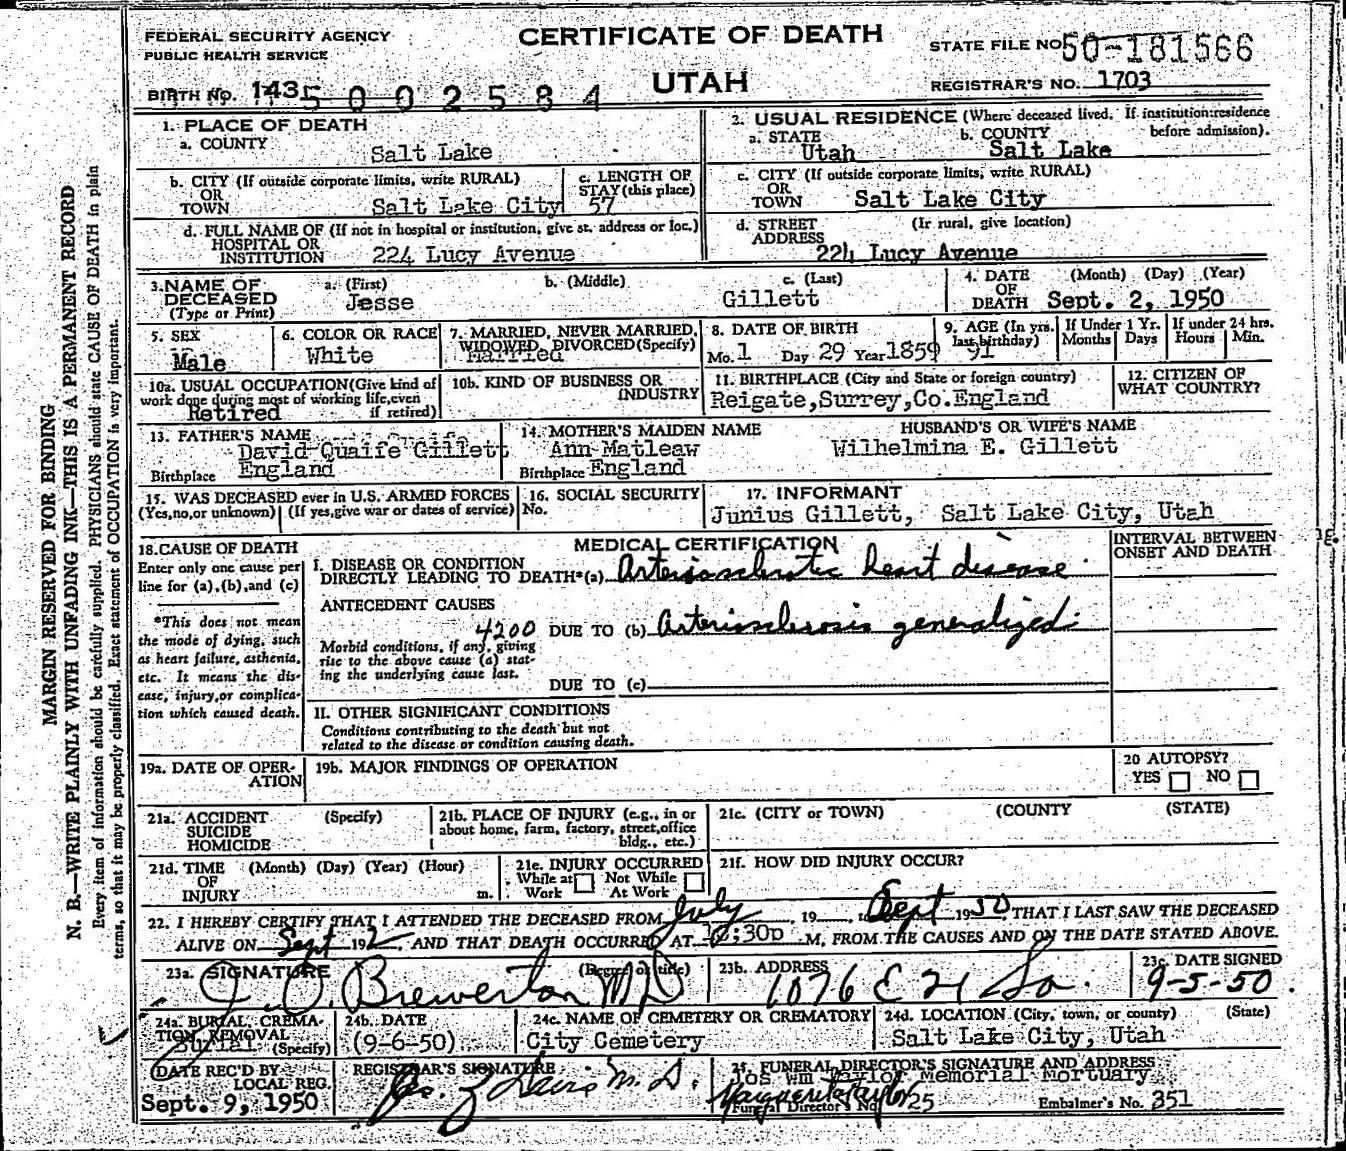 FEDERAL SECURITY AGENCY
PUBLIC HEALTH SERVICE
CERTIFICATE OF DEATH
UTAH
STATE FILE NO. 50-181566
REGISTRAR'S NO. 1703
BIRTH No. 143 5002584
1. PLACE OF DEATH
a. COUNTY
Salt Lake
2. USUAL RESIDENCE (Where deceased lived. If institution:residence before admission).
a. STATE Utah
b. COUNTY Salt Lake
b. CITY (If outside corporate limits, write RURAL)
OR
TOWN Salt Lake City
c. LENGTH OF
STAY (this place)
57
c. CITY (If outside corporate limits, write RURAL)
OR
TOWN Salt Lake City
d. FULL NAME OF (If not in hospital or institution, give st. address or loc.)
HOSPITAL OR
INSTITUTION 224 Lucy Avenue
d. STREET (Ir rural, give location)
ADDRESS
224 Lucy Avenue
3.NAME OF
DECEASED
(Type or Print)
a. (First) Jesse
b. (Middle)
c. (Last) Gillett
4. DATE (Month) (Day) (Year)
OF
DEATH Sept. 2, 1950
5. SEX
Male
6. COLOR OR RACE
White
7. MARRIED, NEVER MARRIED,
WIDOWED, DIVORCED (Specify)
Married
8. DATE OF BIRTH
Mo. 1 Day 29 Year 1859
9. AGE (In yrs.
last birthday)
91
If Under 1 Yr.
Months Days
If under 24 hrs.
Hours Min.
10a. USUAL OCCUPATION(Give kind of
work done during most of working life,even
if retired)
Retired
10b. KIND OF BUSINESS OR
INDUSTRY
11. BIRTHPLACE (City and State or foreign country)
Reigate,Surrey,Co.England
12. CITIZEN OF
WHAT COUNTRY?
13. FATHER'S NAME
David Quaife Gillett
Birthplace England
14. MOTHER'S MAIDEN NAME
Ann Matleaw
Birthplace England
HUSBAND'S OR WIFE'S NAME
Wilhelmina E. Gillett
15. WAS DECEASED ever in U.S. ARMED FORCES
(Yes,no,or unknown) (If yes,give war or dates of service)
16. SOCIAL SECURITY
No.
17. INFORMANT
Junius Gillett, Salt Lake City, Utah
18.CAUSE OF DEATH
Enter only one cause per
line for (a),(b),and (c)
*This does not mean
the mode of dying, such
as heart failure, asthenia,
etc. It means the dis-
ease, injury,or complica-
tion which caused death.
MEDICAL CERTIFICATION
INTERVAL BETWEEN
ONSET AND DEATH
I. DISEASE OR CONDITION
DIRECTLY LEADING TO DEATH*(a) Arteriosclerotic heart disease
ANTECEDENT CAUSES
4200 DUE TO (b) Arteriosclerosis generalized
Morbid conditions, if any, giving
rise to the above cause (a) stat-
ing the underlying cause last.
DUE TO (c)
II. OTHER SIGNIFICANT CONDITIONS
Conditions contributing to the death but not
related to the disease or condition causing death.
19a. DATE OF OPER-
ATION
19b. MAJOR FINDINGS OF OPERATION
20 AUTOPSY?
YES NO
21a. ACCIDENT (Specify)
SUICIDE
HOMICIDE
21b. PLACE OF INJURY (e.g., in or
about home, farm, factory, street,office
bldg., etc.)
21c. (CITY or TOWN) (COUNTY) (STATE)
21d. TIME (Month) (Day) (Year) (Hour)
OF
INJURY m.
21e. INJURY OCCURRED
While at Work
Not While At Work
21f. HOW DID INJURY OCCUR?
22. I HEREBY CERTIFY THAT I ATTENDED THE DECEASED FROM July, 19, to Sept 1950 THAT I LAST SAW THE DECEASED
ALIVE ON Sept 2, AND THAT DEATH OCCURRED AT :30p M, FROM THE CAUSES AND ON THE DATE STATED ABOVE.
23a. SIGNATURE (Degree or title)
J. O. Brewerton MD
23b. ADDRESS
1076 E 21 So.
23c. DATE SIGNED
9-5-50
24a. BURIAL, CREMA-
TION, REMOVAL
(Specify)
Burial
24b. DATE
(9-6-50)
24c. NAME OF CEMETERY OR CREMATORY
City Cemetery
24d. LOCATION (City, town, or county) (State)
Salt Lake City, Utah
DATE REC'D BY
LOCAL REG.
Sept. 9, 1950
REGISTRAR'S SIGNATURE
M.D.
25. FUNERAL DIRECTOR'S SIGNATURE AND ADDRESS
Jos Wm Taylor Memorial Mortuary
Marguerite Taylor
Funeral Director's No. 25
Embalmer's No. 351
MARGIN RESERVED FOR BINDING
N. B.—WRITE PLAINLY WITH UNFADING INK—THIS IS A PERMANENT RECORD
Every item of information should be carefully supplied. PHYSICIANS should state CAUSE OF DEATH in plain
terms, so that it may be properly classified. Exact statement of OCCUPATION is very important.